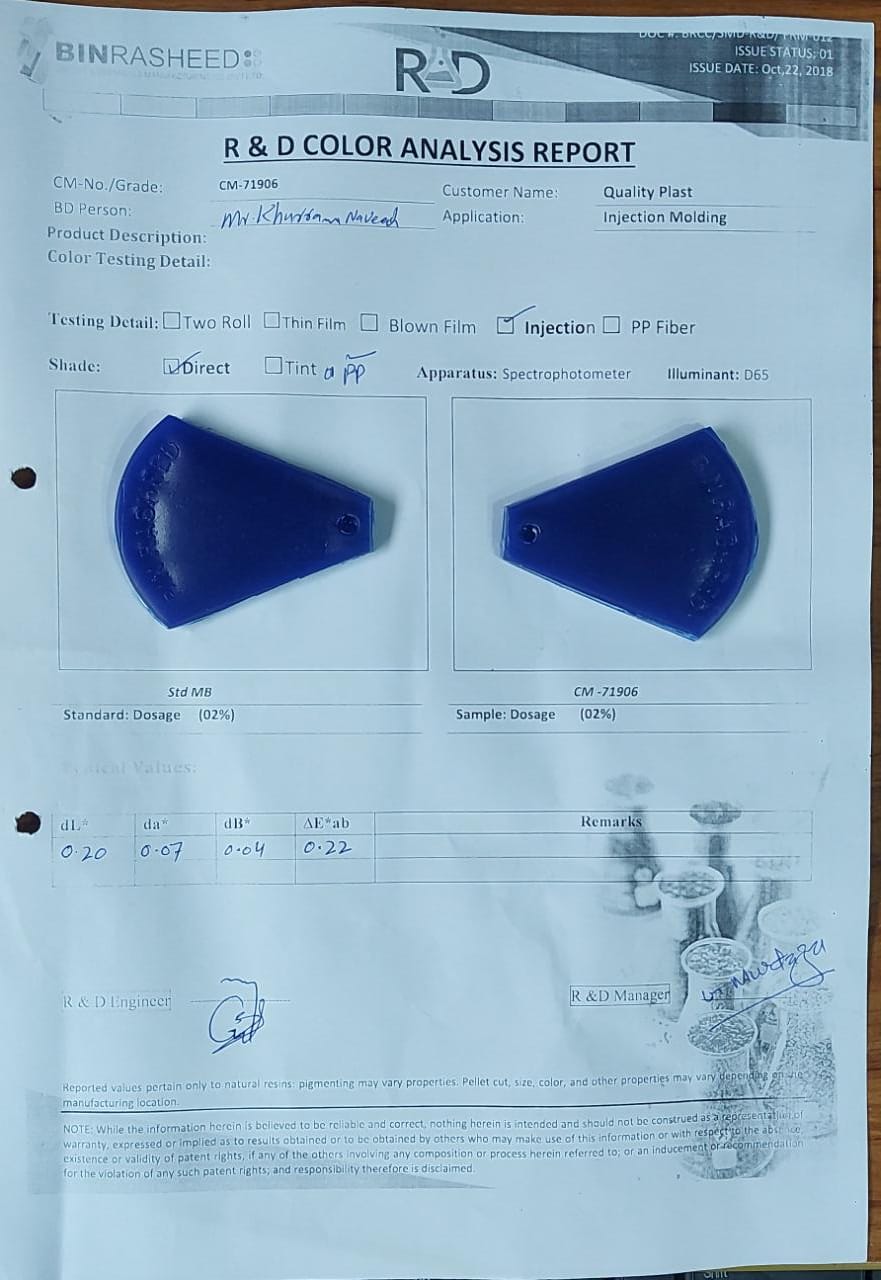 BINRASHEED
R&D
ISSUE STATUS: 01
ISSUE DATE: Oct,22, 2018
R & D COLOR ANALYSIS REPORT
CM-No./Grade: CM-71906 Customer Name: Quality Plast
BD Person: Mr. Khurram Naveed Application: Injection Molding
Product Description:
Color Testing Detail:
Testing Detail: Two Roll Thin Film Blown Film Injection PP Fiber
Shade: Direct Tint PP Apparatus: Spectrophotometer Illuminant: D65
Std MB CM -71906
Standard: Dosage (02%) Sample: Dosage (02%)
Typical Values:
dL* da* dB* ΔE*ab Remarks
0.20 0.07 0.04 0.22
R & D Engineer R &D Manager
Reported values pertain only to natural resins: pigmenting may vary properties. Pellet cut, size, color, and other properties may vary depending on the
manufacturing location.
NOTE: While the information herein is believed to be reliable and correct, nothing herein is intended and should not be construed as a representation of
warranty, expressed or implied as to results obtained or to be obtained by others who may make use of this information or with respect to the absence,
existence or validity of patent rights, if any of the others involving any composition or process herein referred to; or an inducement or recommendation
for the violation of any such patent rights; and responsibility therefore is disclaimed.
Shift